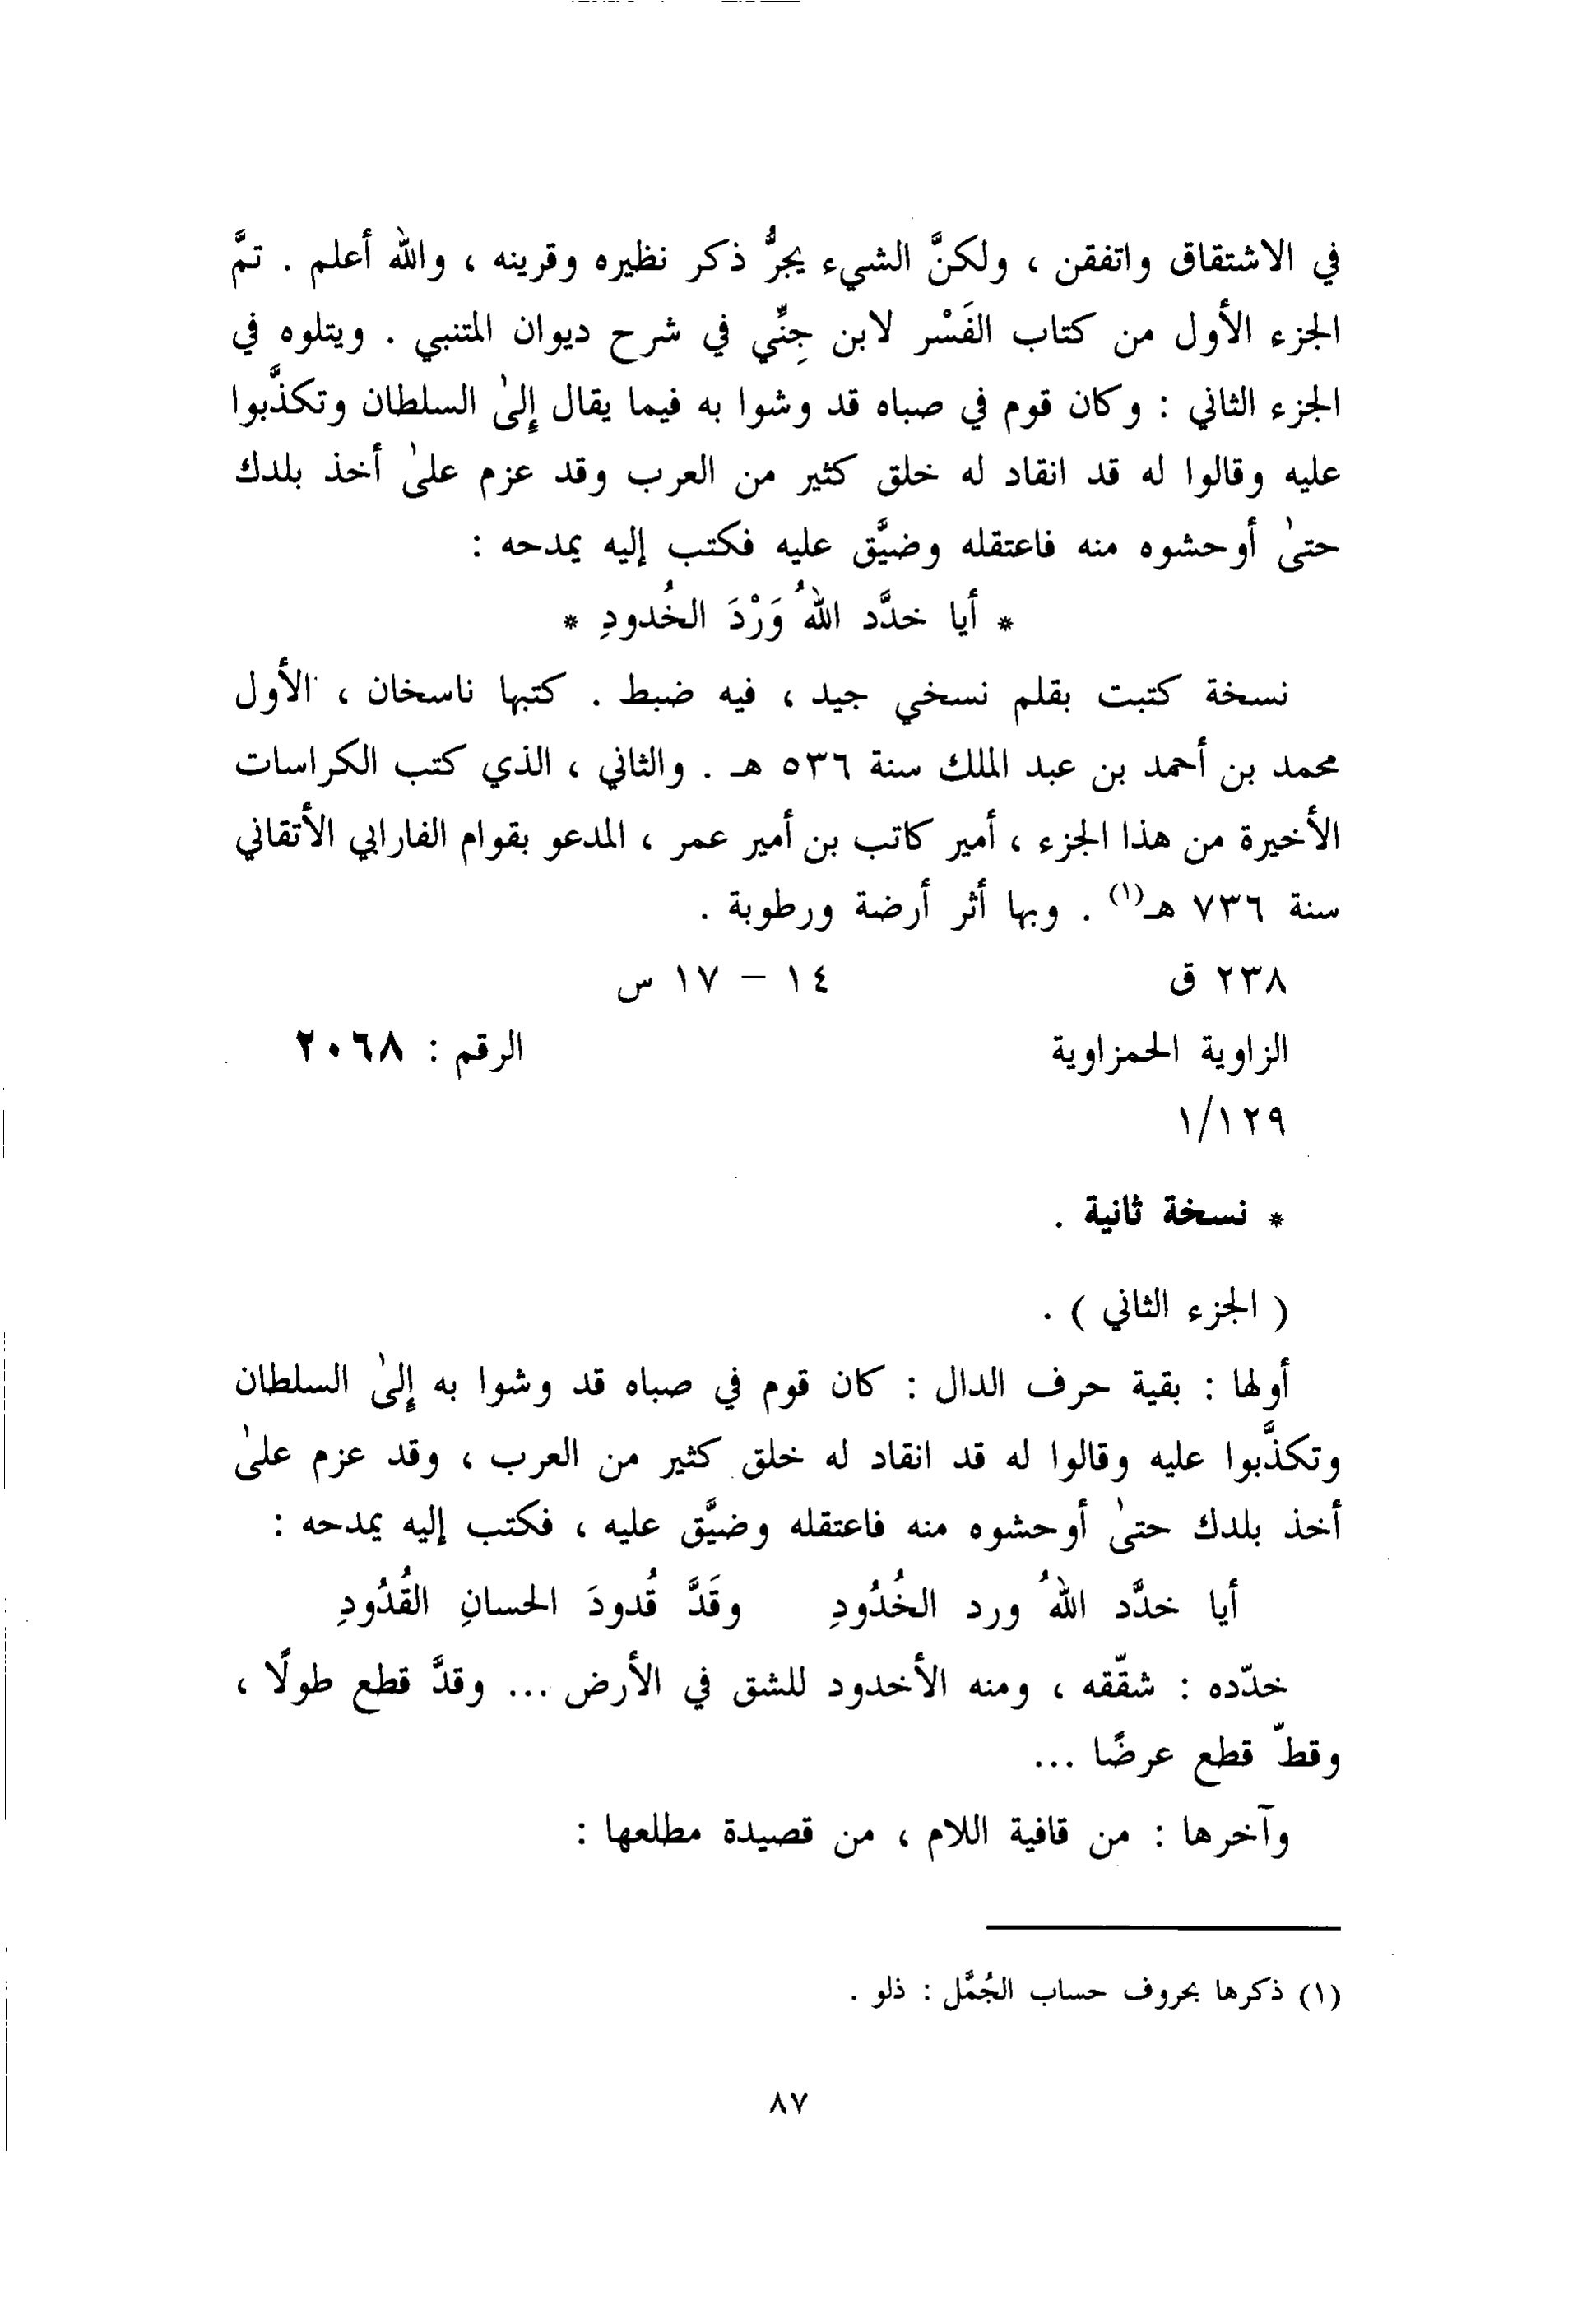 في الاشتقاق واتفقن ، ولكنَّ الشيء يجرُّ ذكر نظيره وقرينه ، والله أعلم . تمَّ
الجزء الأول من كتاب الفَسْر لابن جِنِّي في شرح ديوان المتنبي . ويتلوه في
الجزء الثاني : وكان قوم في صباه قد وشوا به فيما يقال إلىٰ السلطان وتكذَّبوا
عليه وقالوا له قد انقاد له خلق كثير من العرب وقد عزم علىٰ أخذ بلدك
حتىٰ أوحشوه منه فاعتقله وضيَّق عليه فكتب إليه يمدحه :
* أيا خدَّد اللهُ وَرْدَ الخُدودِ *
نسخة كتبت بقلم نسخي جيد ، فيه ضبط . كتبها ناسخان ، الأول
محمد بن أحمد بن عبد الملك سنة ٥٣٦ هـ . والثاني ، الذي كتب الكراسات
الأخيرة من هذا الجزء ، أمير كاتب بن أمير عمر ، المدعو بقوام الفارابي الأتقاني
سنة ٧٣٦ هـ(١) . وبها أثر أرضة ورطوبة .
٢٣٨ ق ١٤ – ١٧ س
الزاوية الحمزاوية الرقم : ٢٠٦٨
١/١٢٩
* نسخة ثانية .
( الجزء الثاني ) .
أولها : بقية حرف الدال : كان قوم في صباه قد وشوا به إلىٰ السلطان
وتكذَّبوا عليه وقالوا له قد انقاد له خلق كثير من العرب ، وقد عزم علىٰ
أخذ بلدك حتىٰ أوحشوه منه فاعتقله وضيَّق عليه ، فكتب إليه يمدحه :
أيا خدَّد اللهُ ورد الخُدُودِ وقَدَّ قُدودَ الحسانِ القُدُودِ
خدّده : شقّقه ، ومنه الأخدود للشق في الأرض ... وقدَّ قطع طولًا ،
وقطّ قطع عرضًا ...
وآخرها : من قافية اللام ، من قصيدة مطلعها :
(١) ذكرها بحروف حساب الجُمَّل : ذلو .
٨٧